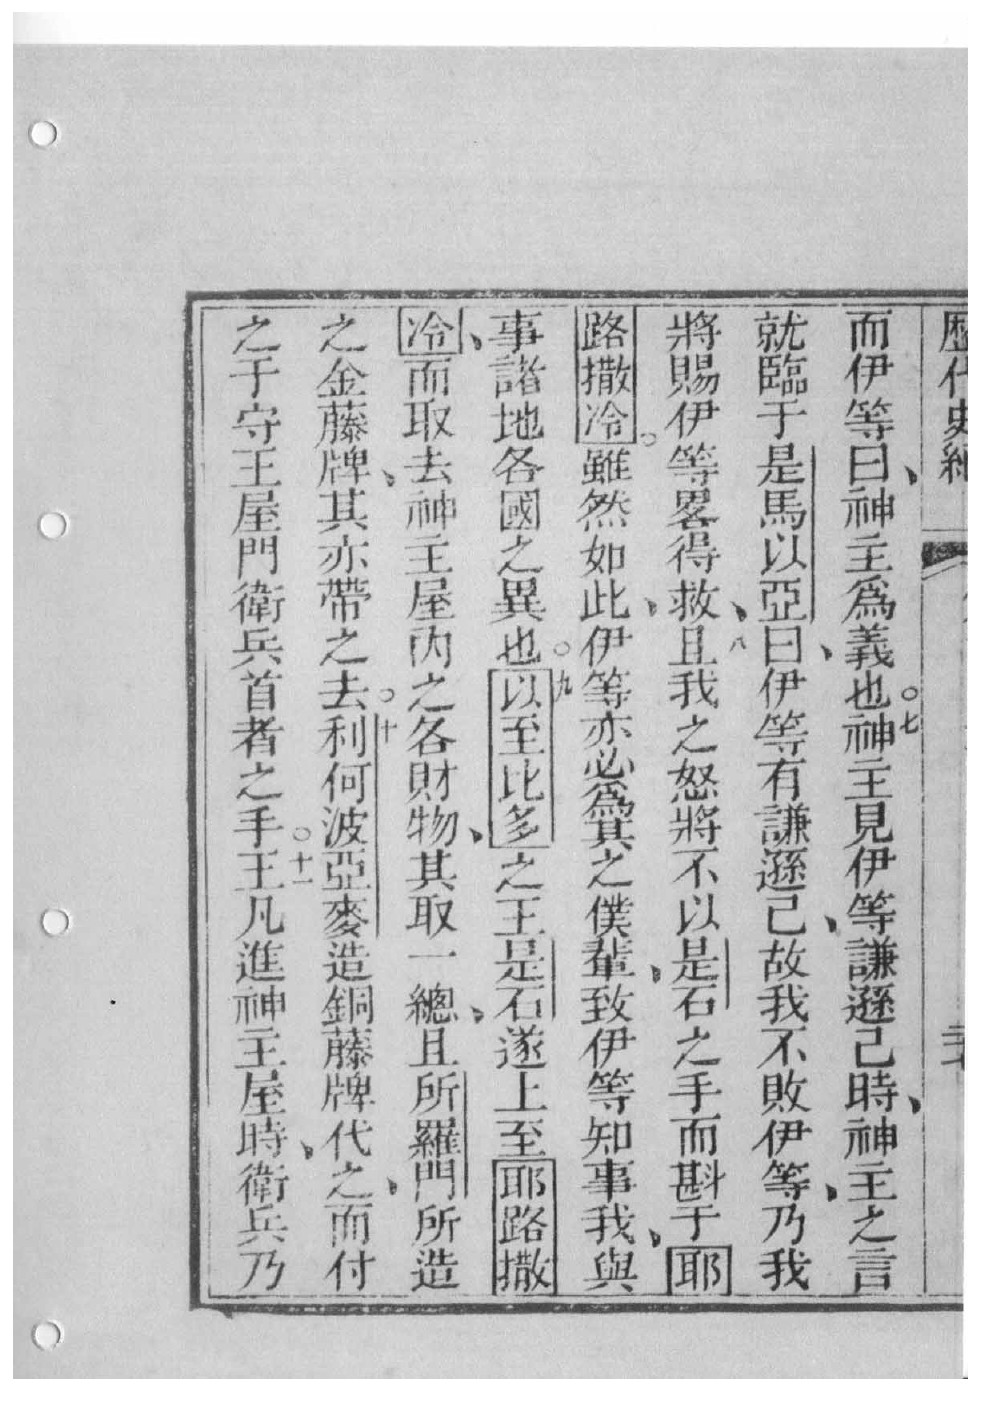 歷代史紀
而伊等曰、神主爲義也。七神主見伊等謙遜己時、神主之言
就臨于是馬以亞曰、伊等有謙遜己、故我不敗伊等、乃我
將賜伊等畧得救、八且我之怒將不以是石之手而斟于耶
路撒冷。雖然如此、伊等亦必爲其之僕輩、致伊等知事我、與
事諸地各國之異也。九以至比多之王是石遂上至耶路撒
冷、而取去神主屋內之各財物、其取一總、且所羅門所造
之金藤牌、其亦帶之去。十利何波亞麥造銅藤牌代之、而付
之于守王屋門衛兵首者之手。十一王凡進神主屋時、衛兵乃